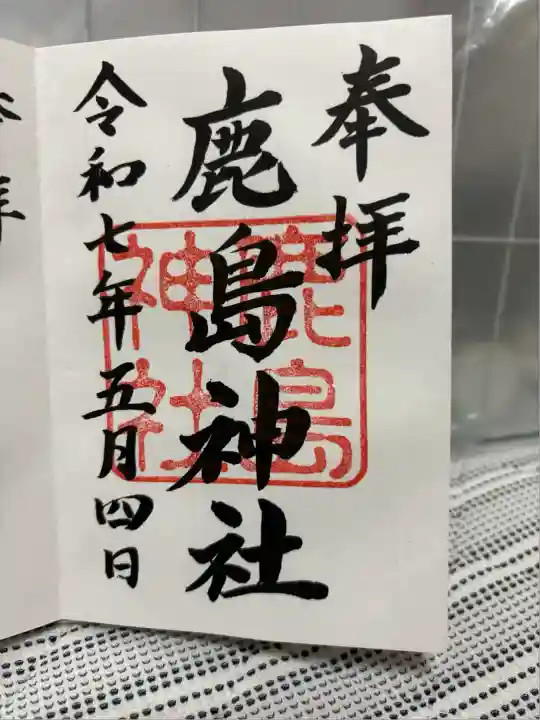 奉拝
鹿島神社
令和七年五月四日
鹿島
神社
拝